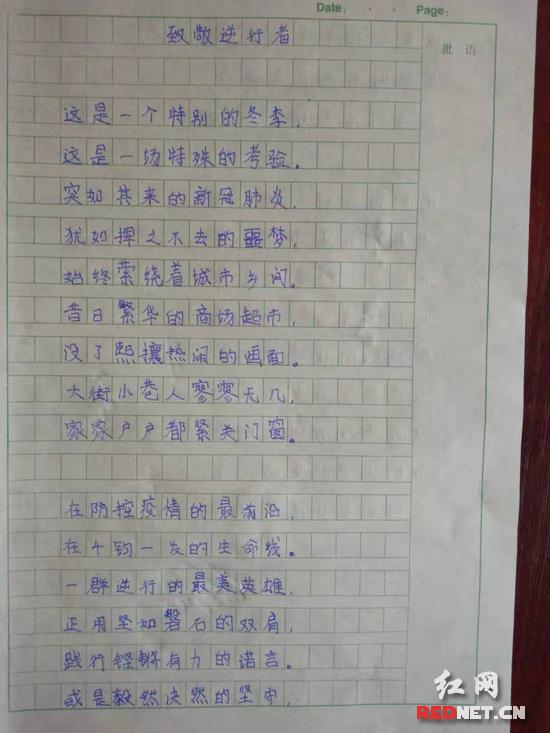 Date: . . Page:
致敬逆行者
批语
这是一个特别的冬季,
这是一场特殊的考验。
突如其来的新冠肺炎,
犹如挥之不去的噩梦,
始终萦绕着城市乡间。
昔日繁华的商场超市,
没了熙攘热闹的画面。
大街小巷人寥寥无几,
家家户户都紧关门窗。
在防控疫情的最前沿,
在千钧一发的生命线。
一群逆行的最美英雄,
正用坚如磐石的双肩,
践行铿锵有力的诺言。
或是毅然决然的坚守,
红网
REDNET.CN